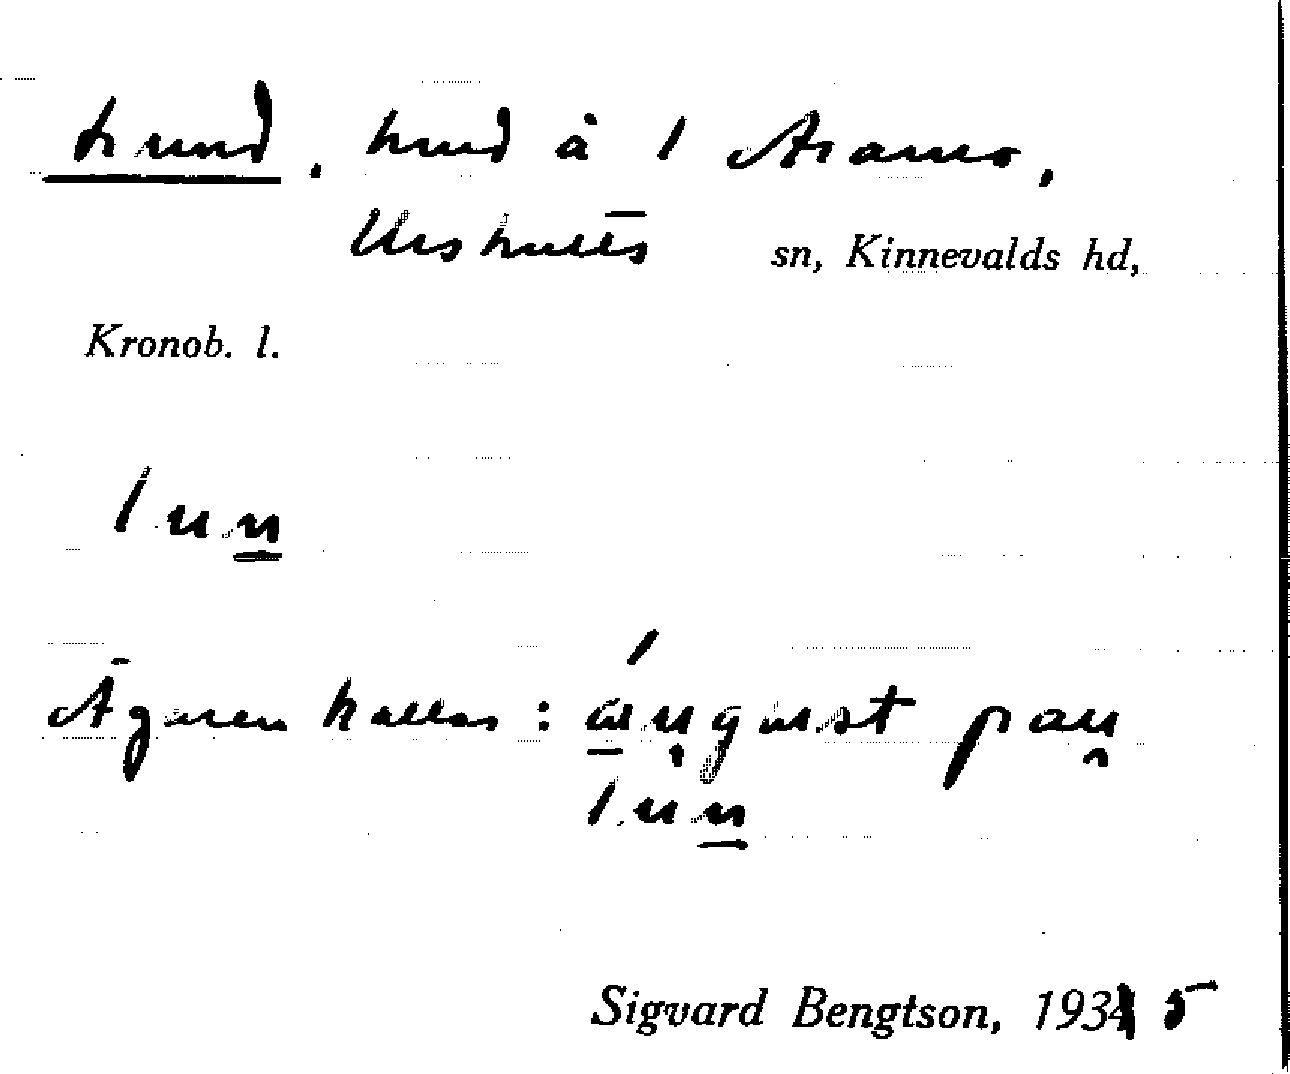 Lund, lund å 1 Aramo,
Urshults sn, Kinnevalds hd,
Kronob. l.
lun
Ägaren kallas: august pau
lun
Sigvard Bengtson, 1934 5